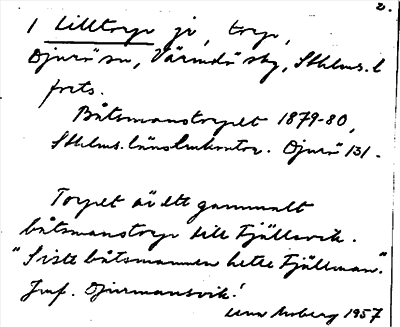 2.
1 Lilltorp jr, torp,
Djurö sn, Värmdö skg, Sthlms. l
forts.
Båtsmanstorpet 1879-80,
Sthlms. länslmkontor. Djurö 131.
Torpet är ett gammalt
båtsmanstorp till Fjällsvik.
"Siste båtsmannen hette Fjällman."
Jmf. Djurmansvik!
Moberg 1957